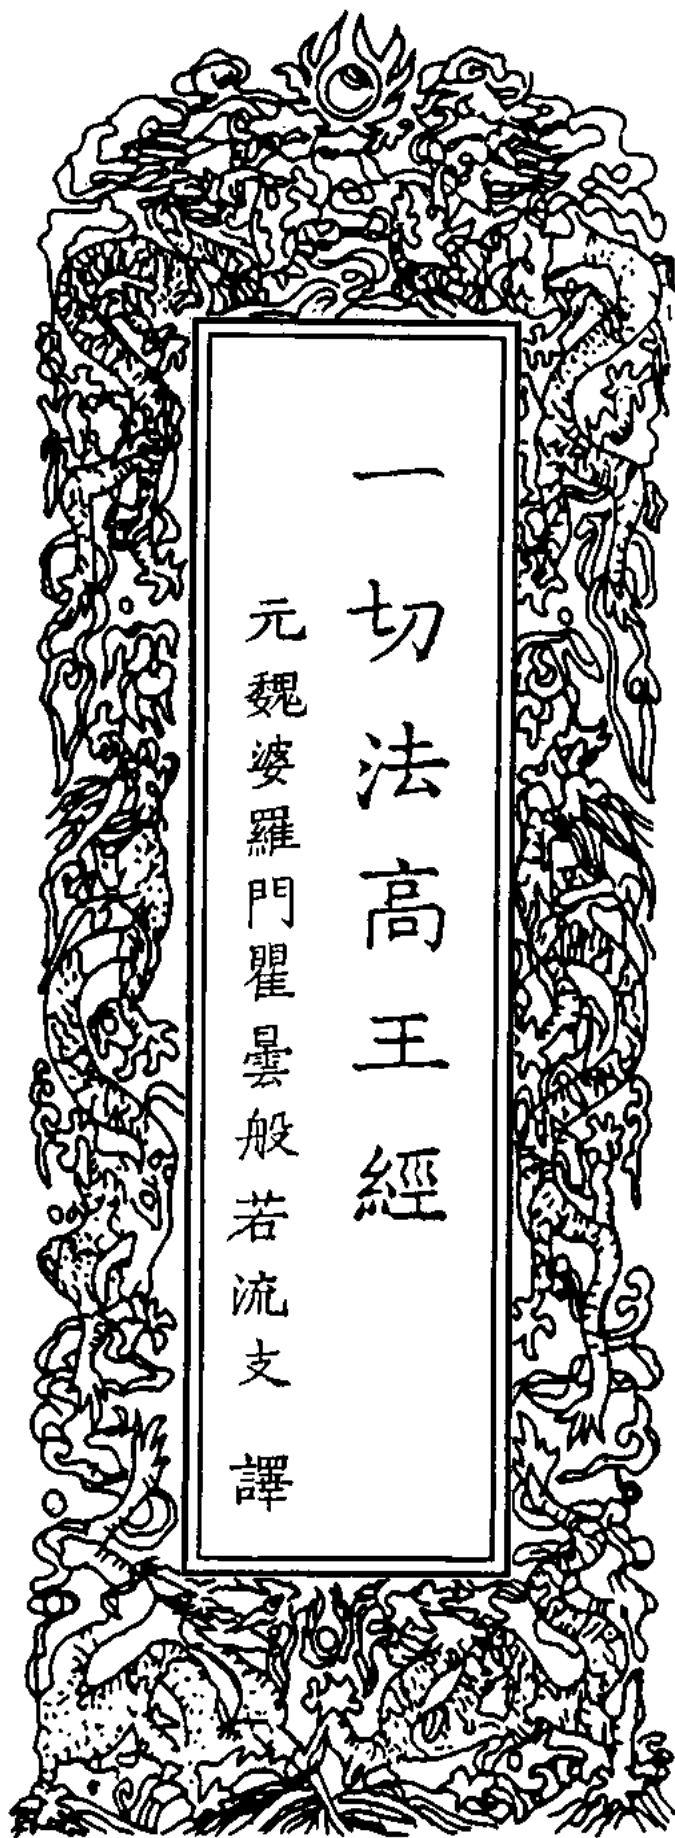 一切法高王經
元魏婆羅門瞿曇般若流支 譯